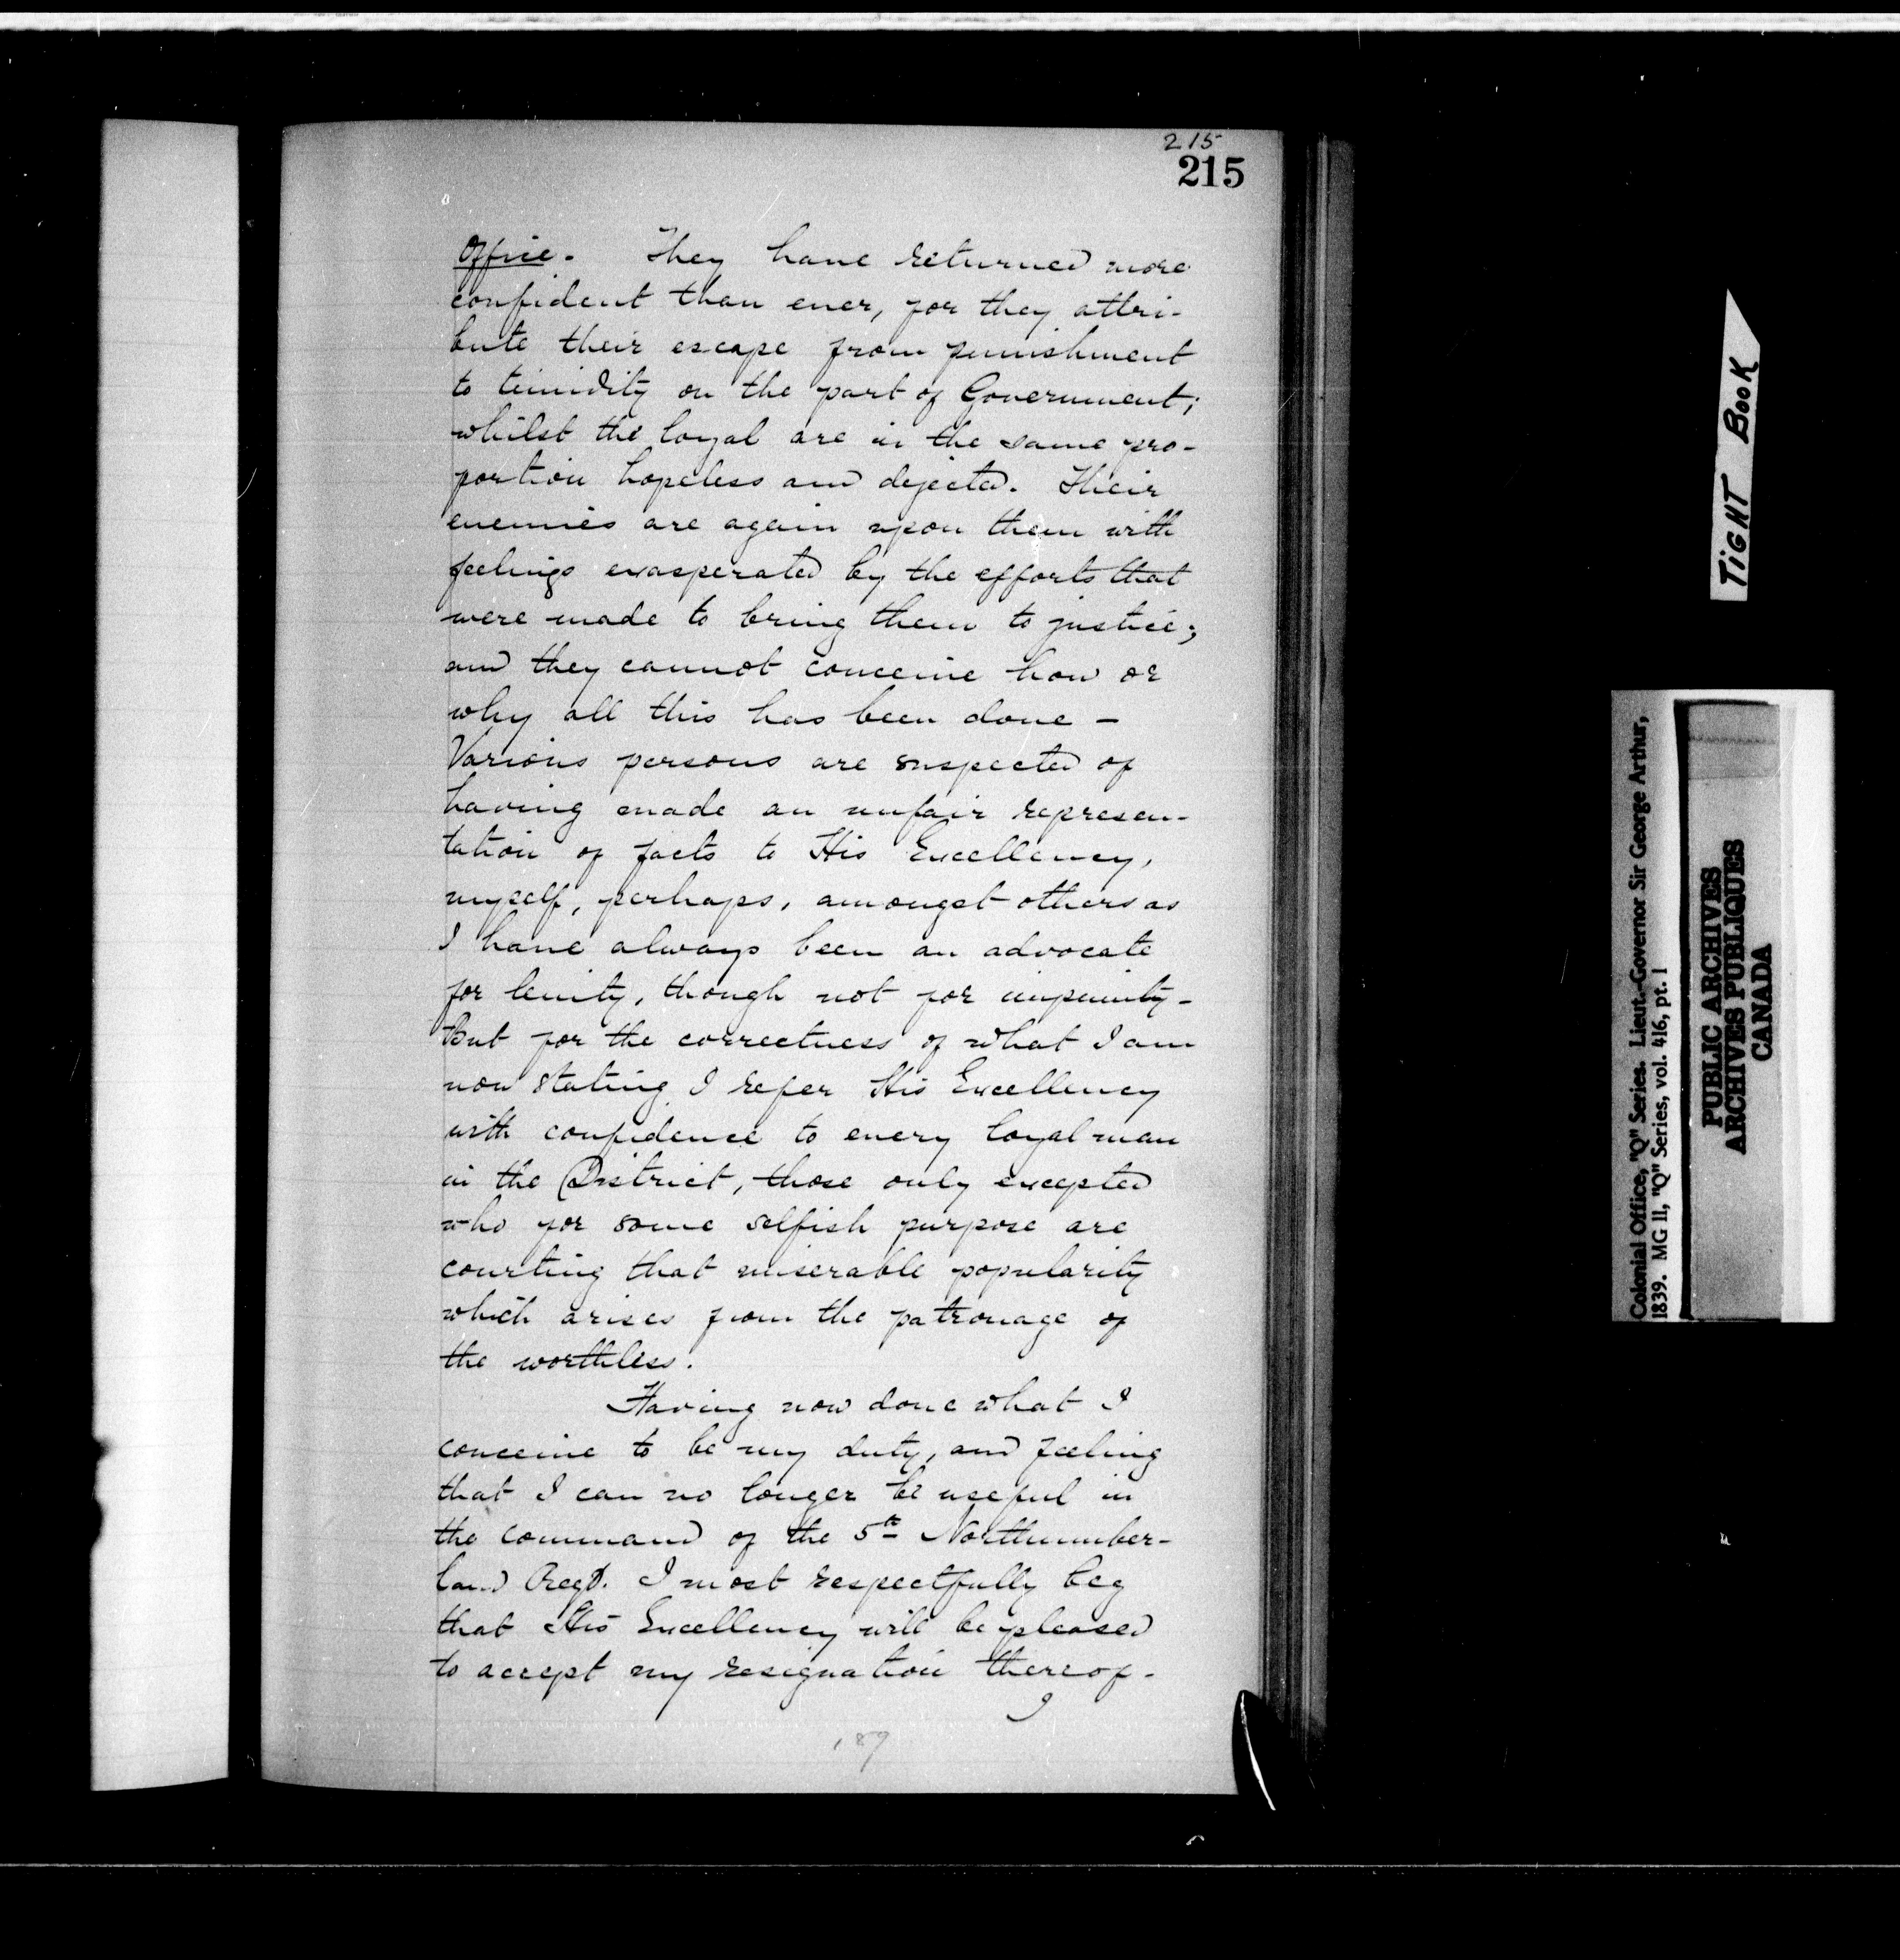 215
215
Office. They have returned more
confident than ever, for they attri-
bute their escape from punishment
to timidity on the part of Government;
whilst the loyal are in the same pro-
portion hopeless and dejected. Their
enemies are again upon them with
feelings exasperated by the efforts that
were made to bring them to justice;
and they cannot conceive how or
why all this has been done -
Various persons are suspected of
having made an unfair represen-
tation of facts to His Excellency,
myself, perhaps, amongst others as
I have always been an advocate
for lenity, though not for impunity -
But for the correctness of what I am
now stating I refer His Excellency
with confidence to every loyal man
in the District, those only excepted
who for some selfish purpose are
courting that miserable popularity
which arises from the patronage of
the worthless.
Having now done what I
conceive to be my duty, and feeling
that I can no longer be useful in
the command of the 5th Northumber-
land Regt. I most respectfully beg
that His Excellency will be pleased
to accept my resignation thereof -
I
189
TIGHT BOOK
Colonial Office, "Q" Series. Lieut.-Governor Sir George Arthur,
1839. MG 11, "Q" Series, vol. 416, pt. 1
PUBLIC ARCHIVES
ARCHIVES PUBLIQUES
CANADA